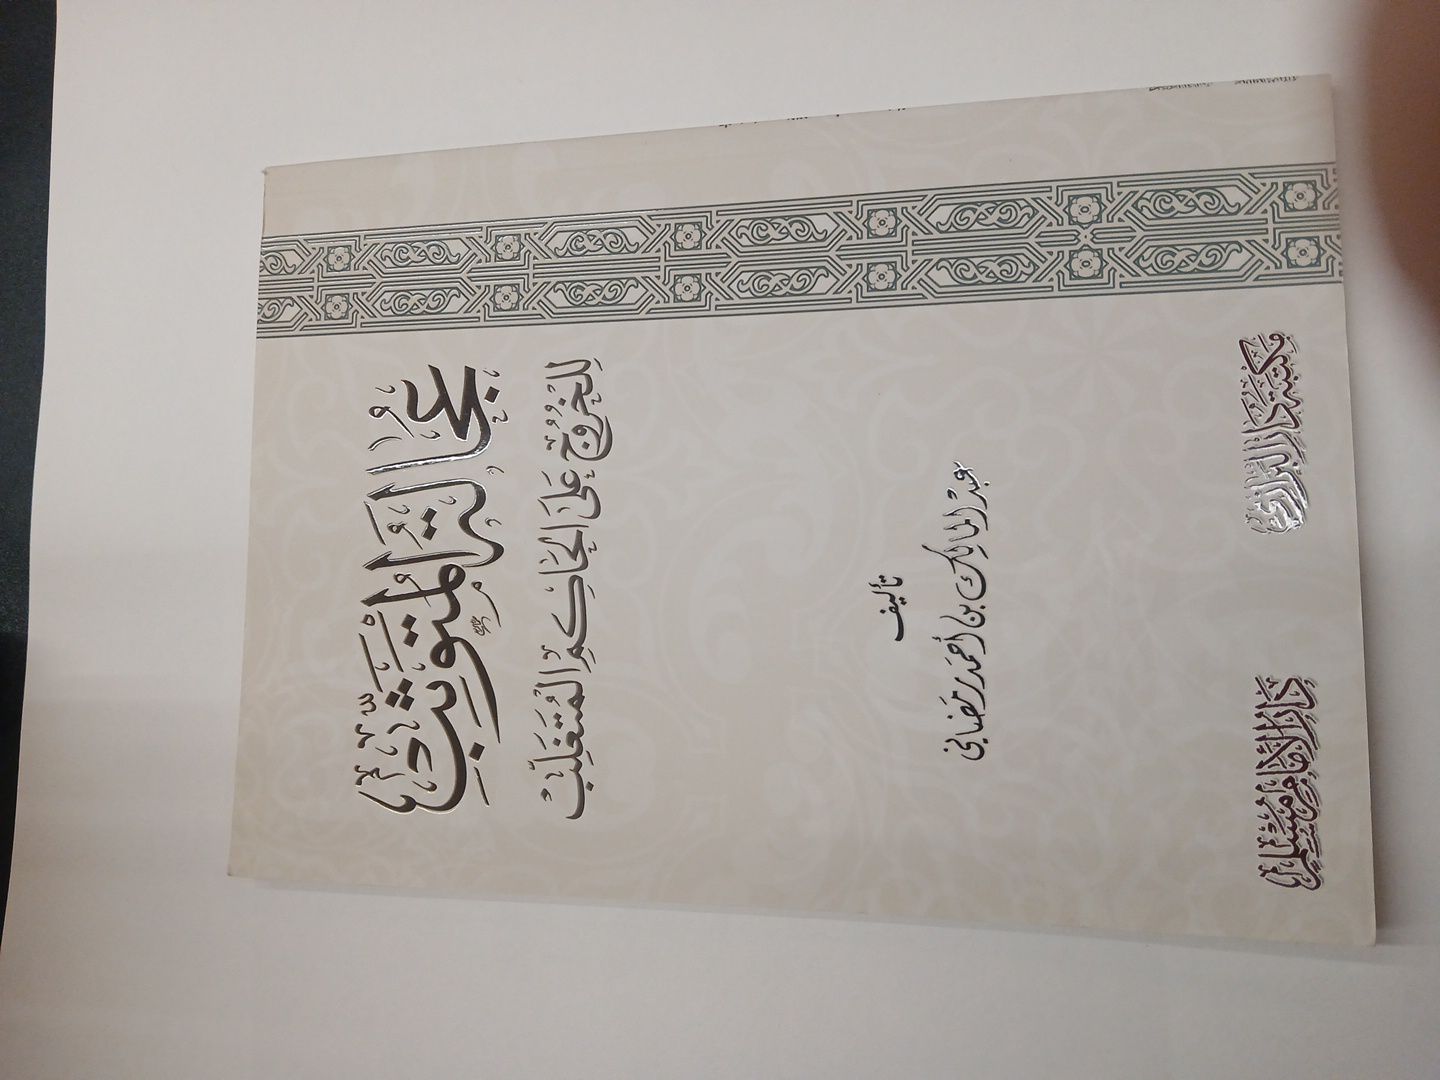 عُجَالَةُ الْمُتَوَثِّبِ
لِلْخُرُوجِ عَلَى الْحَاكِمِ الْمُتَغَلِّبِ
تأليف
عبد المالك بن أحمد رمضاني
مكتبة دار البرازي
دار الإمام مسلم